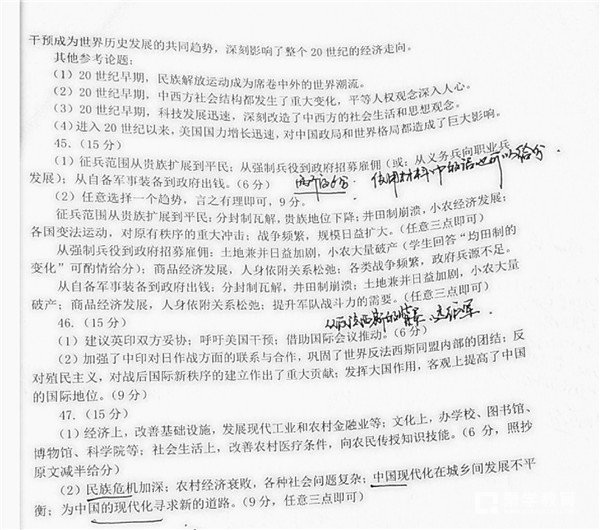 干预成为世界历史发展的共同趋势，深刻影响了整个20世纪的经济走向。
其他参考论题：
（1）20世纪早期，民族解放运动成为席卷中外的世界潮流。
（2）20世纪早期，中西方社会结构都发生了重大变化，平等人权观念深入人心。
（3）20世纪早期，科技发展迅速，深刻改造了中西方的社会生活和思想观念。
（4)进入20世纪以来，美国国力增长迅速，对中国政局和世界格局都造成了巨大影响。
45.（15分）
（1）征兵范围从贵族扩展到平民；从强制兵役到政府招募雇佣（或：从义务兵向职业兵
发展）；从自备军事装备到政府出钱。（6分）
使用材料中的话也可以给分
（2）任意选择一个趋势，言之有理即可，9分。
征兵范围从贵族扩展到平民：分封制瓦解，贵族地位下降；井田制崩溃，小农经济发展；
各国变法运动，对原有秩序的重大冲击；战争频繁，规模日益扩大。（任意三点即可）
从强制兵役到政府招募雇佣：土地兼并日益加剧，小农大量破产（学生回答“均田制的
变化”可酌情给分）；商品经济发展，人身依附关系松弛；各类战争频繁，政府兵源不足。
从自备军事装备到政府出钱：分封制瓦解，井田制崩溃；土地兼并日益加剧，小农大量
破产；商品经济发展，人身依附关系松弛；提升军队战斗力的需要。（任意三点即可）
46.（15分）
（1）建议英印双方妥协；呼吁美国干预；借助国际会议推动。（6分）
（2）加强了中印对日作战方面的联系与合作，巩固了世界反法西斯同盟内部的团结；反
对殖民主义，对战后国际新秩序的建立作出了重大贡献；发挥大国作用，客观上提高了中国
的国际地位。（9分）
47.（15分）
（1）经济上，改善基础设施，发展现代工业和农村金融业等；文化上，办学校、图书馆、
博物馆、科学院等；社会生活上，改善农村医疗条件，向农民传授知识技能。（6 分，照抄
原文减半给分）
（2）民族危机加深；农村经济衰败，各种社会问题复杂；中国现代化在城乡间发展不平
衡；为中国的现代化寻求新的道路。（9分，任意三点即可）